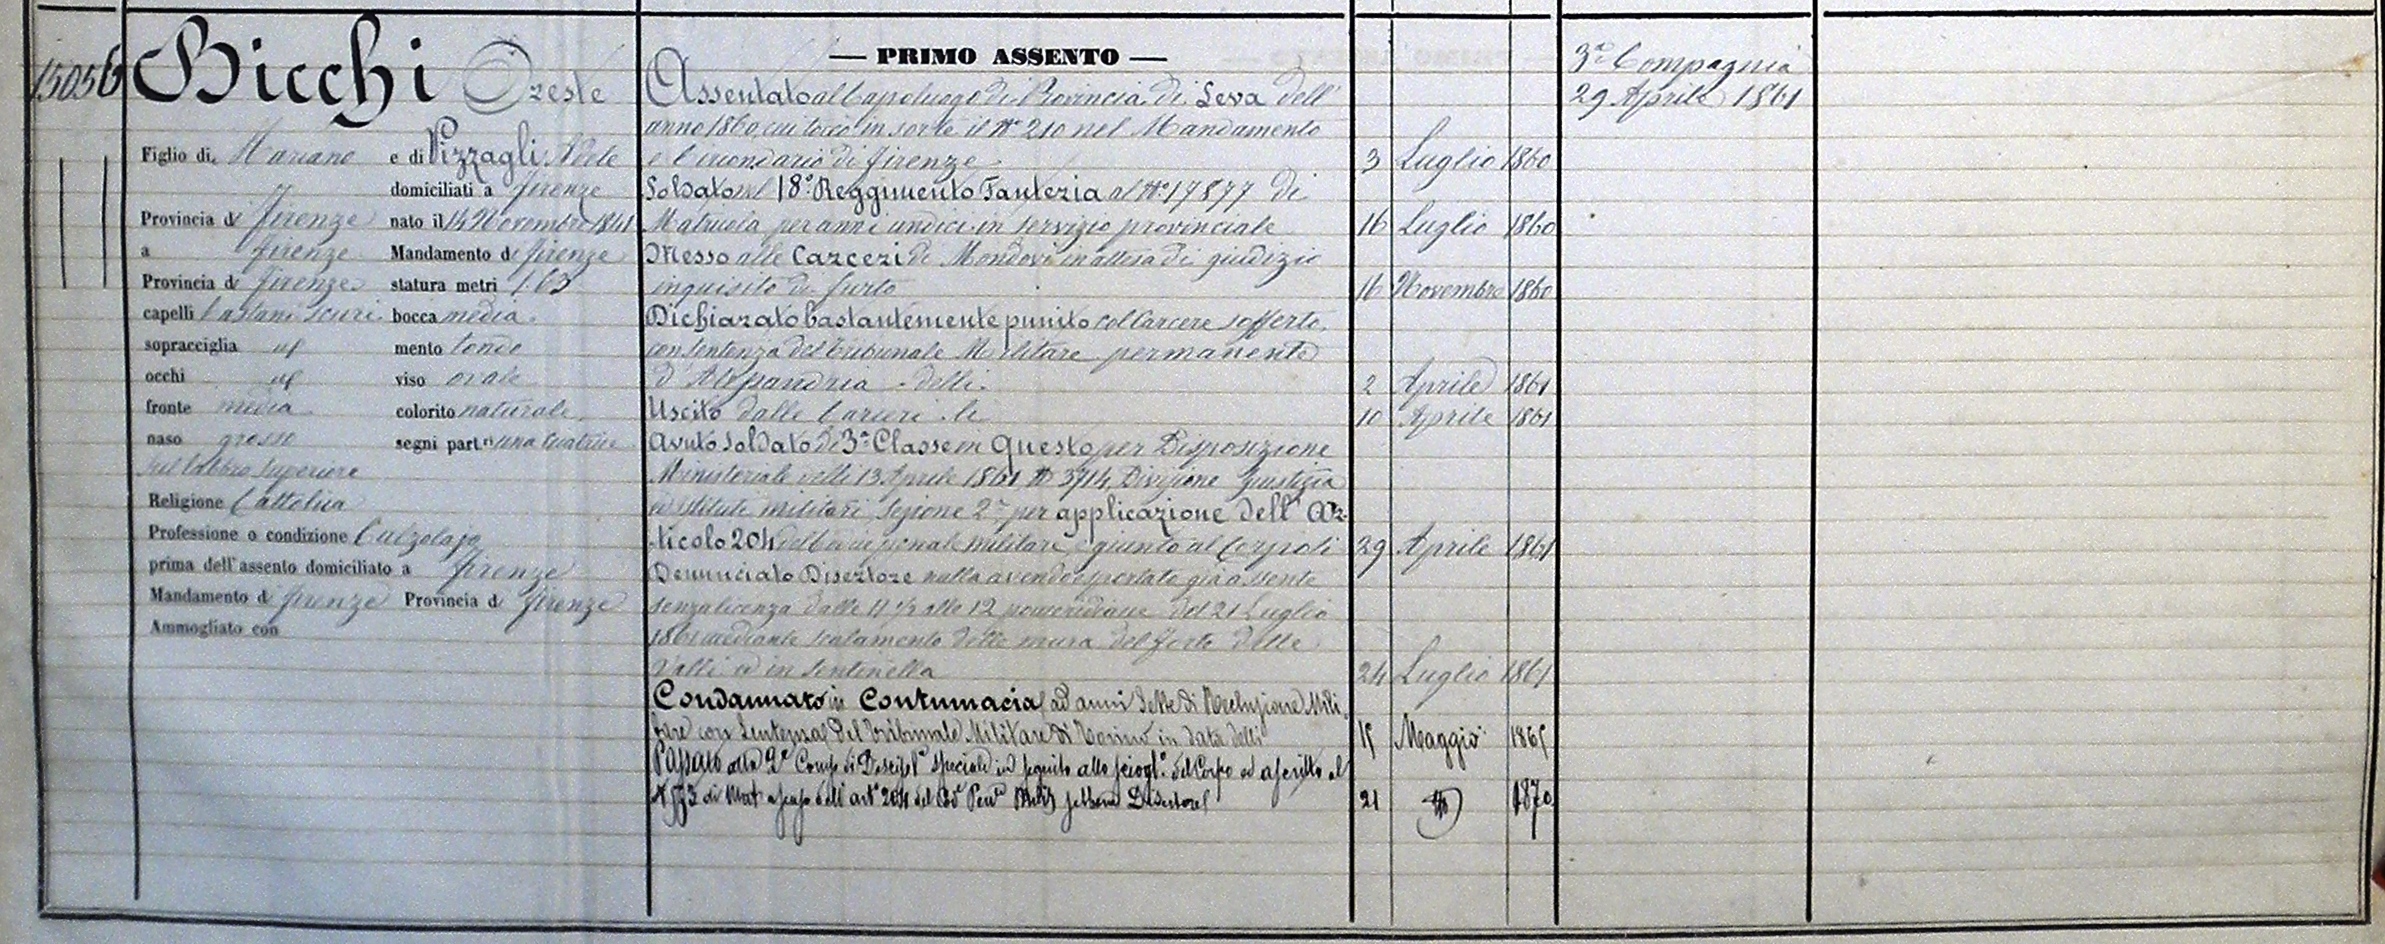 15056
Bicchi Oreste
Figlio di Mariano e di Pizzagli Adele
domiciliati a Firenze
Provincia di Firenze nato il 14 Novembre 1841
a Firenze Mandamento di Firenze
Provincia di Firenze statura metri 1.63
capelli Castani scuri bocca media
sopracciglia id mento tondo
occhi id viso ovale
fronte media colorito naturale
naso grosso segni part.ri una cicatrice
sul labbro superiore
Religione Cattolica
Professione o condizione Calzolajo
prima dell'assento domiciliato a Firenze
Mandamento di Firenze Provincia di Firenze
Ammogliato con
— PRIMO ASSENTO —
Assentato al Capoluogo di Provincia di Leva dell'
anno 1860 cui toccò in sorte il N° 210 nel Mandamento
e Circondario di Firenze 3 Luglio 1860
Soldato nel 18° Reggimento Fanteria al N° 17877 di
Matricola per anni undici in servizio provinciale 16 Luglio 1860
Messo alle Carceri di Mondovì in attesa di giudizio
inquisito di furto 16 Novembre 1860
Dichiarato bastantemente punito col Carcere sofferto
con sentenza del Tribunale Militare permanente
d'Alessandria delli 2 Aprile 1861
Uscito dalle Carceri li 10 Aprile 1861
Avuto Soldato di 3ª Classe in Questo per Disposizione
Ministeriale delli 13 Aprile 1861 N° 3714 Divisione Giustizia
ed istituti militari, Sezione 2ª per applicazione dell' Ar-
ticolo 204 del Codice penale militare, e giunto al Corpo li 29 Aprile 1861
Denunciato Disertore nulla avendo esportato già assente
senza licenza dalle 11 ½ alle 12 pomeridiane del 21 Luglio
1861 mediante scalamento delle mura del forte delle
Valli ed in sentinella 24 Luglio 1861
Condannato in Contumacia ad anni sette di Reclusione Mili-
tare con Sentenza del Tribunale Militare di Torino in data delli Maggio
Passato alla 2ª Comp. di Discipl.na Speciale in seguito allo sciogl.° del Corpo ed ascritto al
N 573 di Mat. a senso dell' art° 204 del Cod° Pen.le Disertore 21 1870
3ª Compagnia
29 Aprile 1861